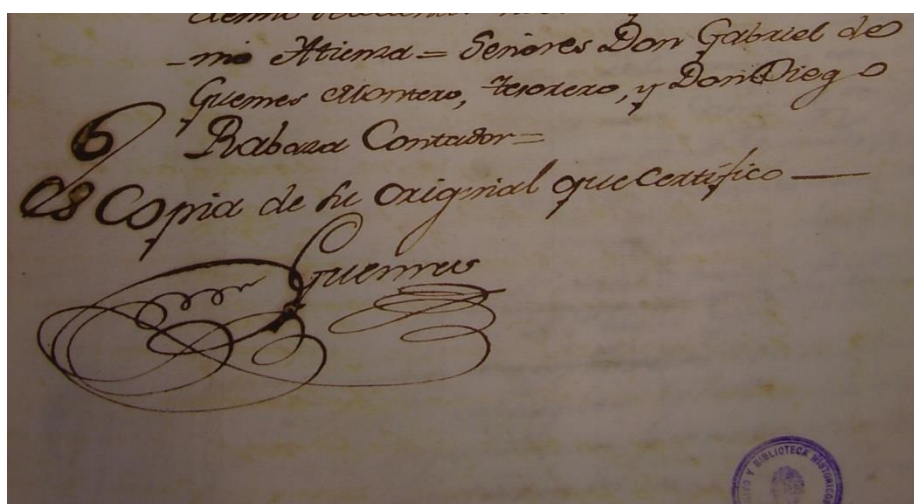 -mo Atienza = Señores Don Gabriel de
Guemes Montero, tesorero, y Don Diego
Rabaza Contador =
es Copia de su original que Certifico —
Guemes
BIBLIOTECA HISTORICOS